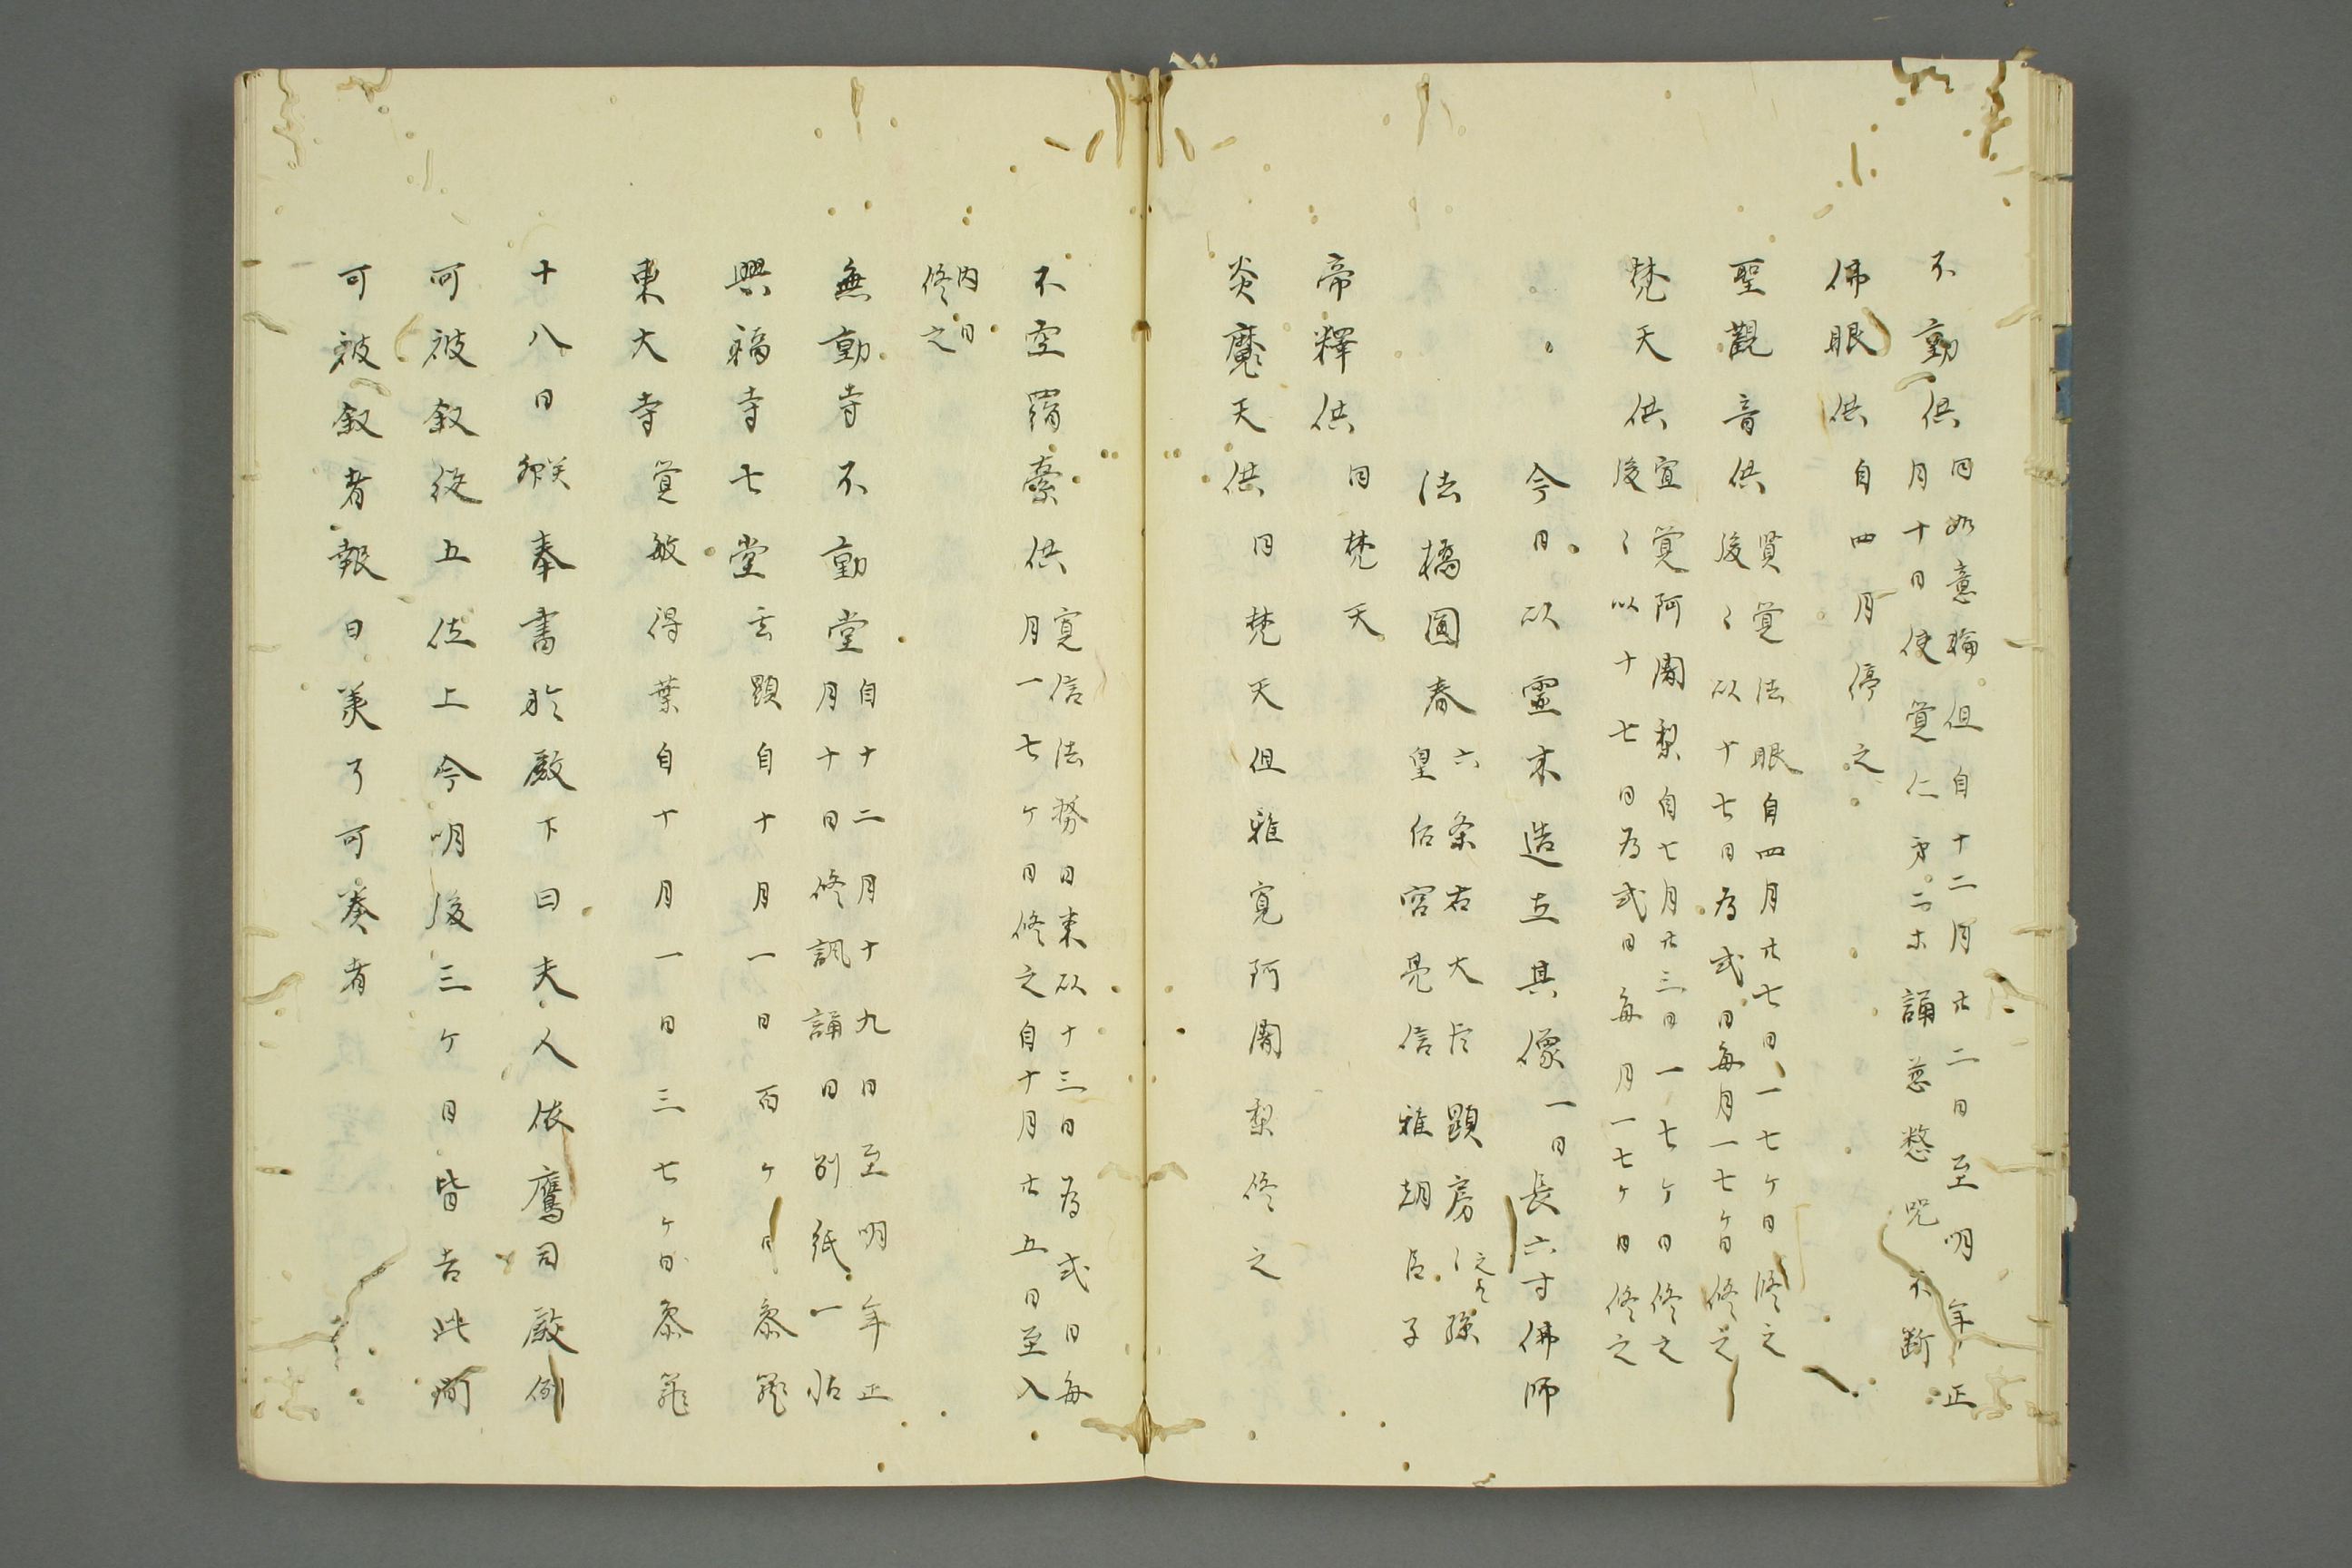 不動供同如意輪但自十二月廿二日至明年正
月十日使覚仁弟二ホ誦慈愍呪不断
佛眼供自四月停之
聖觀音供賢覚法眼自四月廿七日一七ケ日修之
後〻以十七日為式日毎月一七ケ日修之
梵天供宣覚阿闍梨自七月廿三日一七ケ日修之
後〻以十七日為式日毎月一七ケ日修之
今日以霊木造立其像一日長六寸佛師
法橋圓春六条右大臣顕房之孫
皇后宮亮信雅朝臣子
帝釋供同梵天
炎魔天供同梵天但雅寛阿闍梨修之
不空羂索供寛信法務日来以十三日為式日毎
月一七ケ日修之自十月廿五日至入
内日
修之
無動寺不動堂自十二月十九日至明年正
月十日修諷誦日別紙一帖
興福寺七堂玄顕自十月一日百ケ日参籠
東大寺覚敏得業自十月一日三七ケ日参籠
十八日癸卯奉書於殿下曰夫人依鷹司殿例
可被叙従五位上今明後三ケ日皆吉此間
可被叙者報曰美了可奏者